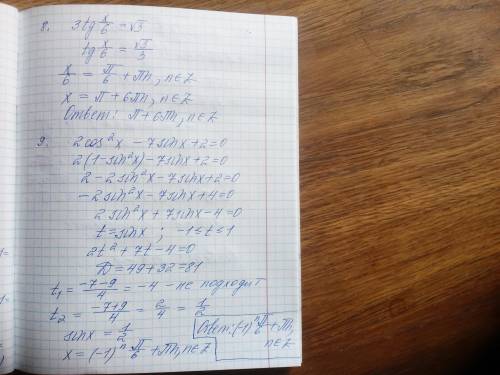 8. 3tg x/6 = √3
tg x/6 = √3/3
x/6 = π/6 + πn, n∈Z
x = π + 6πn, n∈Z
Ответ: π + 6πn, n∈Z
9. 2cos²x - 7sinx + 2 = 0
2(1-sin²x) - 7sinx + 2 = 0
2 - 2sin²x - 7sinx + 2 = 0
-2sin²x - 7sinx + 4 = 0
2sin²x + 7sinx - 4 = 0
t = sinx ; -1 ≤ t ≤ 1
2t² + 7t - 4 = 0
D = 49 + 32 = 81
t₁ = (-7-9)/4 = -4 - не подходит
t₂ = (-7+9)/4 = 2/4 = 1/2
sinx = 1/2
x = (-1)ⁿ π/6 + πn, n∈Z
Ответ: (-1)ⁿ π/6 + πn,
n∈Z